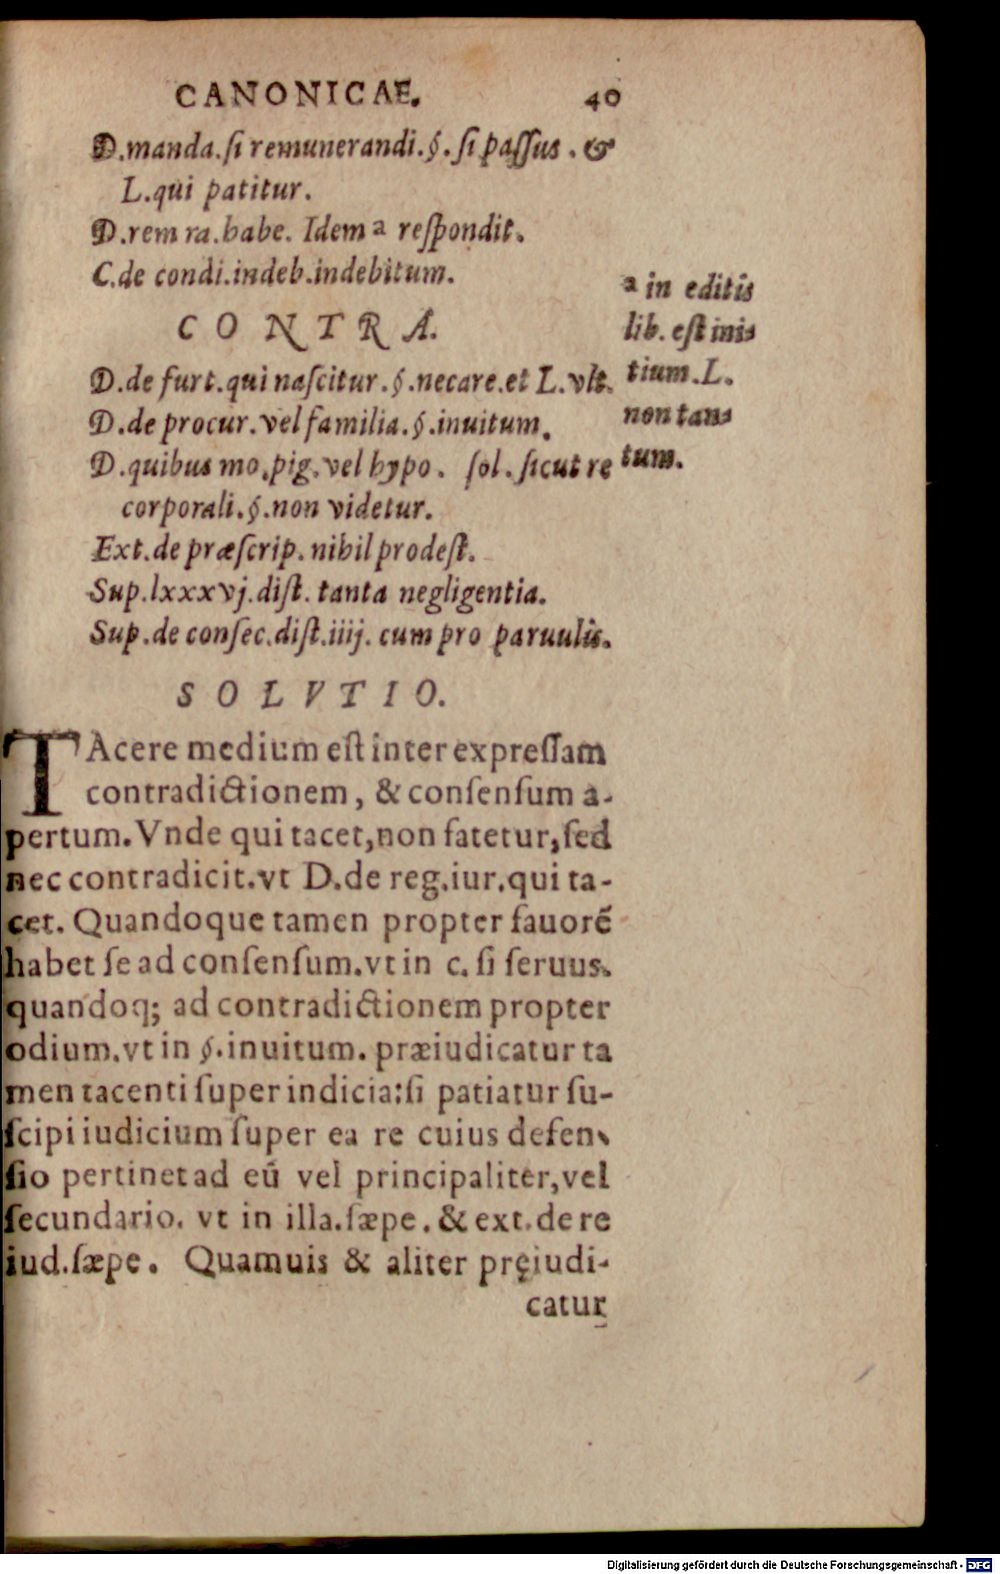 CANONICAE. 40
D.manda.ſi remunerandi.§.ſi paſſus. &
L.qui patitur.
D.rem ra.habe. Idem ª reſpondit.
C.de condi.indeb.indebitum.
CONTRA.
D.de furt.qui naſcitur.§.necare.et L.vlt.
D.de procur.vel familia.§.inuitum.
D.quibus mo.pig.vel hypo. ſol.ſicut re
corporali.§.non videtur.
Ext.de præſcrip.nihil prodeſt.
Sup.lxxxvj.diſt. tanta negligentia.
Sup.de conſec.diſt.iiij. cum pro paruulis.
ª in editis
lib. eſt ini-
tium.L.
non tan-
tum.
SOLVTIO.
TAcere medium eſt inter expreſſam
contradictionem, & conſenſum a-
pertum. Vnde qui tacet, non fatetur, ſed
nec contradicit.vt D.de reg.iur.qui ta-
cet. Quandoque tamen propter fauorẽ
habet ſe ad conſenſum.vt in c. ſi ſeruus.
quandoq; ad contradictionem propter
odium.vt in §.inuitum. præiudicatur ta
men tacenti ſuper indicia:ſi patiatur ſu-
ſcipi iudicium ſuper ea re cuius defen-
ſio pertinet ad eũ vel principaliter, vel
ſecundario. vt in illa.ſæpe. & ext.de re
iud.ſæpe. Quamuis & aliter pręiudi-
catur
Digitalisierung gefördert durch die Deutsche Forschungsgemeinschaft - DFG